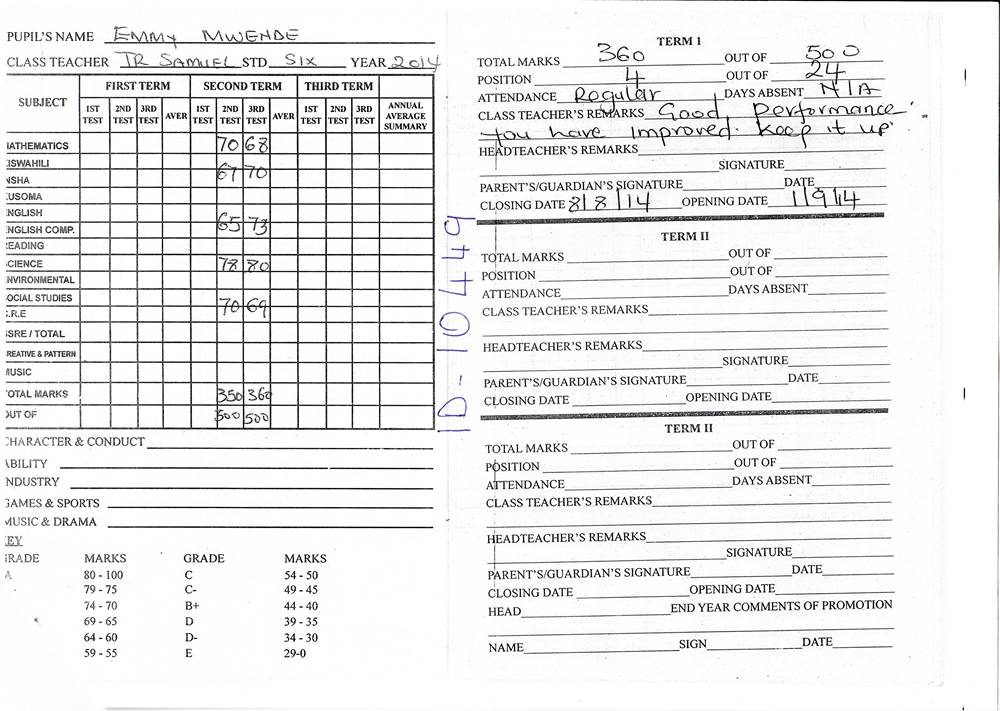 PUPIL'S NAME EMMY MWENDE
CLASS TEACHER TR SAMUEL STD SIX YEAR 2014
SUBJECT FIRST TERM SECOND TERM THIRD TERM
1ST TEST 2ND TEST 3RD TEST AVER 1ST TEST 2ND TEST 3RD TEST AVER 1ST TEST 2ND TEST 3RD TEST ANNUAL AVERAGE SUMMARY
ATHEMATICS 70 68
ISWAHILI
NSHA 67 70
USOMA
NGLISH
NGLISH COMP. 65 73
EADING
CIENCE 78 80
NVIRONMENTAL
OCIAL STUDIES
.R.E 70 69
SRE / TOTAL
REATIVE & PATTERN
USIC
OTAL MARKS 350 360
OUT OF 500 500
CHARACTER & CONDUCT
ABILITY
NDUSTRY
GAMES & SPORTS
MUSIC & DRAMA
KEY
GRADE MARKS GRADE MARKS
A 80 - 100 C 54 - 50
79 - 75 C- 49 - 45
74 - 70 B+ 44 - 40
69 - 65 D 39 - 35
64 - 60 D- 34 - 30
59 - 55 E 29-0
ID - 10449
TERM 1
TOTAL MARKS 360 OUT OF 500
POSITION 4 OUT OF 24
ATTENDANCE Regular DAYS ABSENT N/A
CLASS TEACHER'S REMARKS Good Performance.
You have improved. Keep it up.
HEADTEACHER'S REMARKS
SIGNATURE
PARENT'S/GUARDIAN'S SIGNATURE DATE
CLOSING DATE 8/8/14 OPENING DATE 1/9/14
TERM II
TOTAL MARKS OUT OF
POSITION OUT OF
ATTENDANCE DAYS ABSENT
CLASS TEACHER'S REMARKS
HEADTEACHER'S REMARKS
SIGNATURE
PARENT'S/GUARDIAN'S SIGNATURE DATE
CLOSING DATE OPENING DATE
TERM II
TOTAL MARKS OUT OF
POSITION OUT OF
ATTENDANCE DAYS ABSENT
CLASS TEACHER'S REMARKS
HEADTEACHER'S REMARKS
SIGNATURE
PARENT'S/GUARDIAN'S SIGNATURE DATE
CLOSING DATE OPENING DATE
HEAD END YEAR COMMENTS OF PROMOTION
NAME SIGN DATE